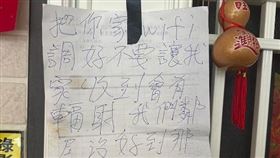 把你家wifi
調好不要讓我
家收到會有
輻射 我們鄰
居沒好到那
進